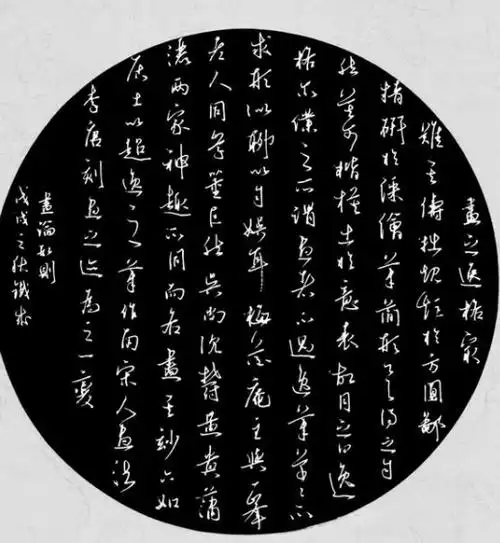 畫之逸格最
難其儔拙規矩於方圓鄙
精研於彩繪筆簡形具得之自
然莫可楷模出於意表故目之曰逸
格尔僕之所謂畫者不過逸筆草草不
求形似聊以自娛耳梅花庵主與一峯
老人同學董巨然吳尚沈鬱黃貴瀟
灑兩家神趣不同而各盡其妙六如
居士以超逸之筆作南宋人畫法
李唐刻畫之迹為之一變
畫論數則
戊戌之秋鐵